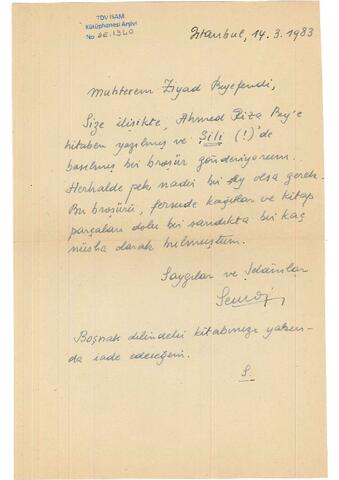 TDV İSAM
Kütüphanesi Arşivi
No
İstanbul, 14.3.1983
Muhterem Ziyad Beyefendi,
Size ilişikte, Ahmed Rıza Bey'e
hitaben yazılmış ve Şili (!)'de
basılmış bir broşür gönderiyorum.
Herhalde pek nadir bir şey olsa gerek.
Bu broşürü, fersude kağıtlar ve kitap
parçaları dolu bir sandıkta bir kaç
nüsha olarak bulmuştum.
Saygılar ve Selâmlar
Boşnak dilindeki kitabınızı yakın-
da iade edeceğim.
S.